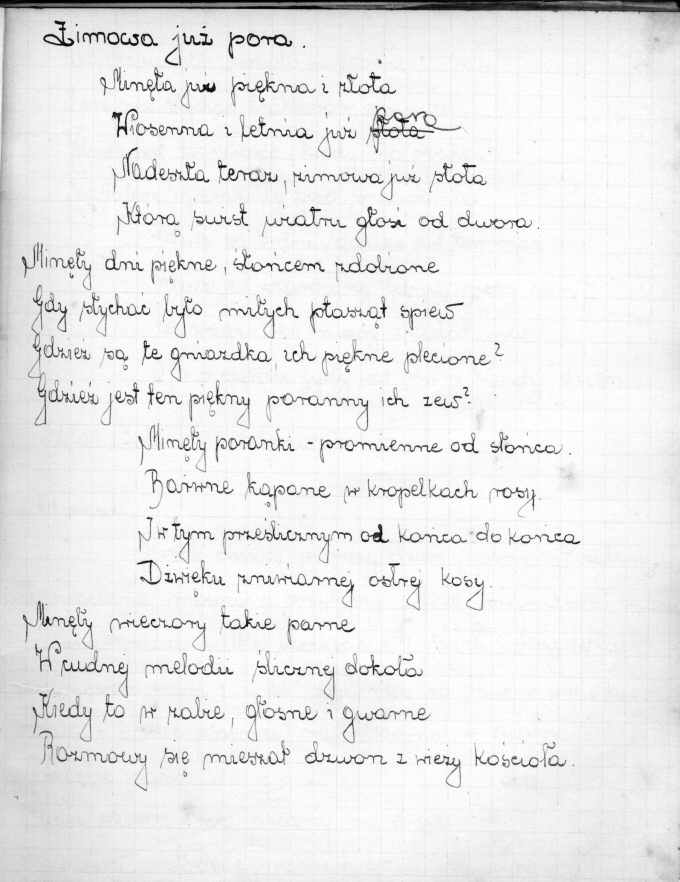 Zimowa już pora.
Minęła już piękna i złota
Wiosenna i letnia już złota pora
Nadeszła teraz, zimowa już słota
Którą świst wiatru głosi od dwora.
Minęły dni piękne, słońcem zdobione
Gdy słychać było miłych ptasząt śpiew
Gdzież są te gniazdka, ich piękne plecione?
Gdzież jest ten piękny poranny ich zew?
Minęły poranki - promienne od słońca.
Barwne kąpane w kropelkach rosy.
I w tym prześlicznym od końca do końca
Dźwięku żniwiarnej ostrej kosy.
Minęły wieczory takie parne
W cudnej melodii ślicznej dokoła
Kiedy to w żabie, głośne i gwarne
Rozmowy się mieszał dzwon z wieży kościoła.